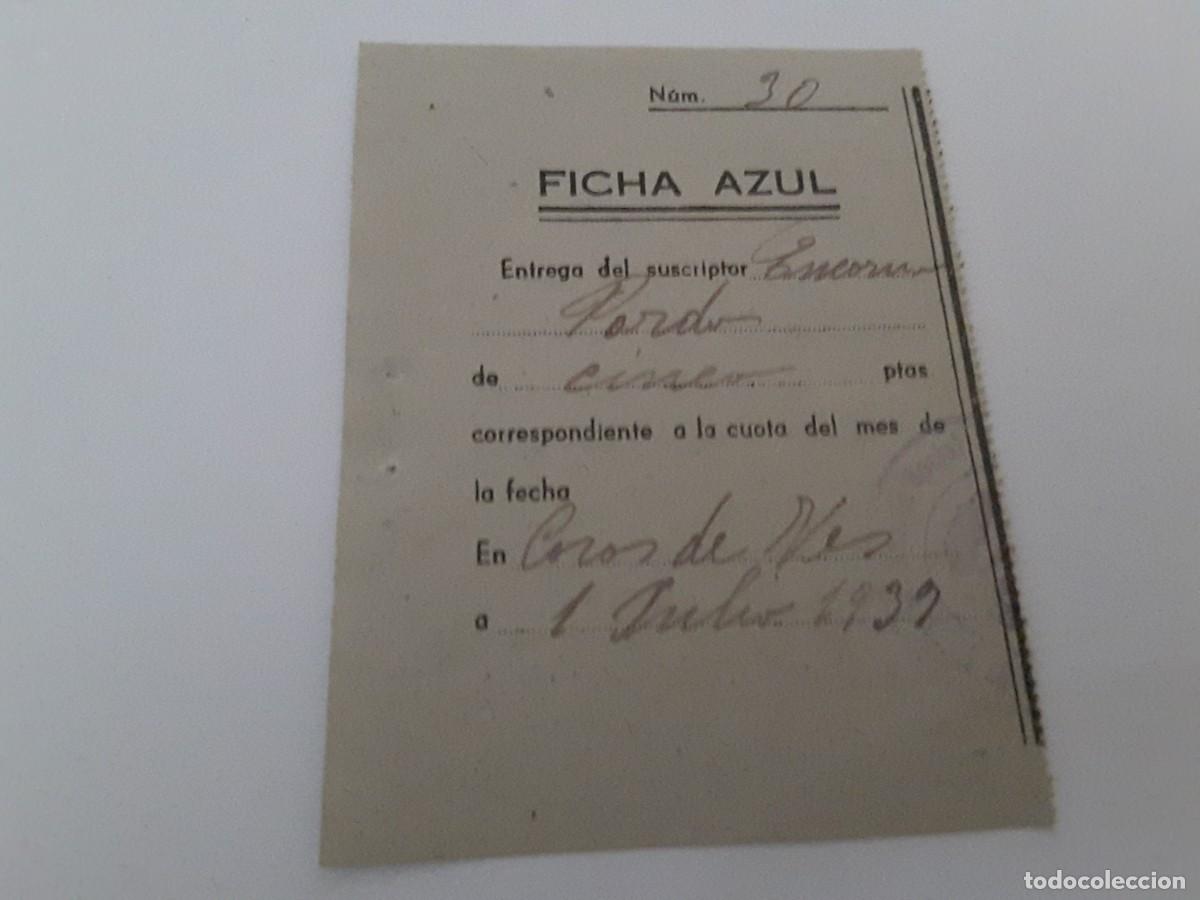 Núm. 30
FICHA AZUL
Entrega del suscriptor
Pardo
de cinco ptas
correspondiente a la cuota del mes de
la fecha
En de Ves
a 1 Julio 1939
todocoleccion